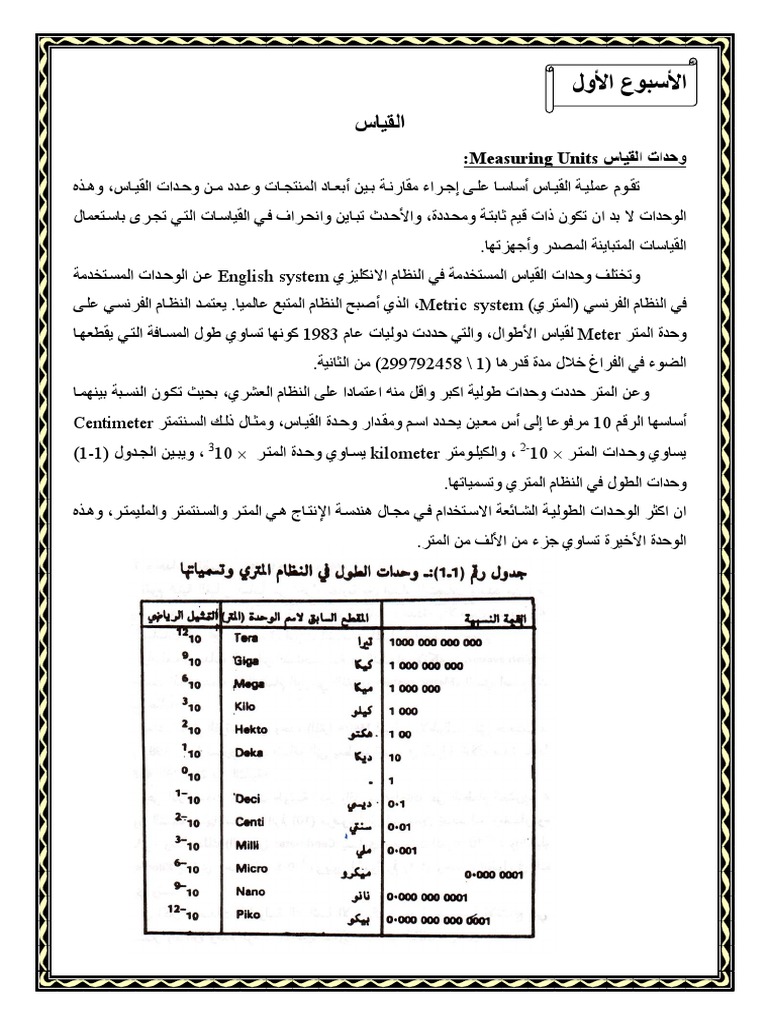 الأسبوع الأول
القياس
وحدات القياس Measuring Units:
تقوم عملية القياس أساسا على إجراء مقارنة بين أبعاد المنتجات وعدد من وحدات القياس، وهذه
الوحدات لا بد ان تكون ذات قيم ثابتة ومحددة، والأحدث تباين وانحراف في القياسات التي تجرى باستعمال
القياسات المتباينة المصدر وأجهزتها.
وتختلف وحدات القياس المستخدمة في النظام الانكليزي English system عن الوحدات المستخدمة
في النظام الفرنسي (المتري) Metric system، الذي أصبح النظام المتبع عالميا. يعتمد النظام الفرنسي على
وحدة المتر Meter لقياس الأطوال، والتي حددت دوليات عام 1983 كونها تساوي طول المسافة التي يقطعها
الضوء في الفراغ خلال مدة قدرها (1 \ 299792458) من الثانية.
وعن المتر حددت وحدات طولية اكبر واقل منه اعتمادا على النظام العشري، بحيث تكون النسبة بينهما
أساسها الرقم 10 مرفوعا إلى أس معين يحدد اسم ومقدار وحدة القياس، ومثال ذلك السنتمتر Centimeter
يساوي وحدات المتر × 10⁻² ، والكيلومتر kilometer يساوي وحدة المتر × 10³ ، ويبين الجدول (1-1)
وحدات الطول في النظام المتري وتسمياتها.
ان اكثر الوحدات الطولية الشائعة الاستخدام في مجال هندسة الإنتاج هي المتر والسنتمتر والمليمتر، وهذه
الوحدة الأخيرة تساوي جزء من الألف من المتر.
جدول رقم (1-1):ـ وحدات الطول في النظام المتري وتسمياتها
القيمة النسبية المقطع السابق لاسم الوحدة (المتر) التمثيل الرياضي
1000 000 000 000 تيرا Tera 10¹²
1 000 000 000 كيكا Giga 10⁹
1 000 000 ميكا Mega 10⁶
1 000 كيلو Kilo 10³
1 00 هكتو Hekto 10²
10 ديكا Deka 10¹
1 - 10⁰
0·1 ديسي Deci 10⁻¹
0·01 سنتي Centi 10⁻²
0·001 ملي Milli 10⁻³
0·000 0001 ميكرو Micro 10⁻⁶
0·000 000 0001 نانو Nano 10⁻⁹
0·000 000 000 0001 بيكو Piko 10⁻¹²